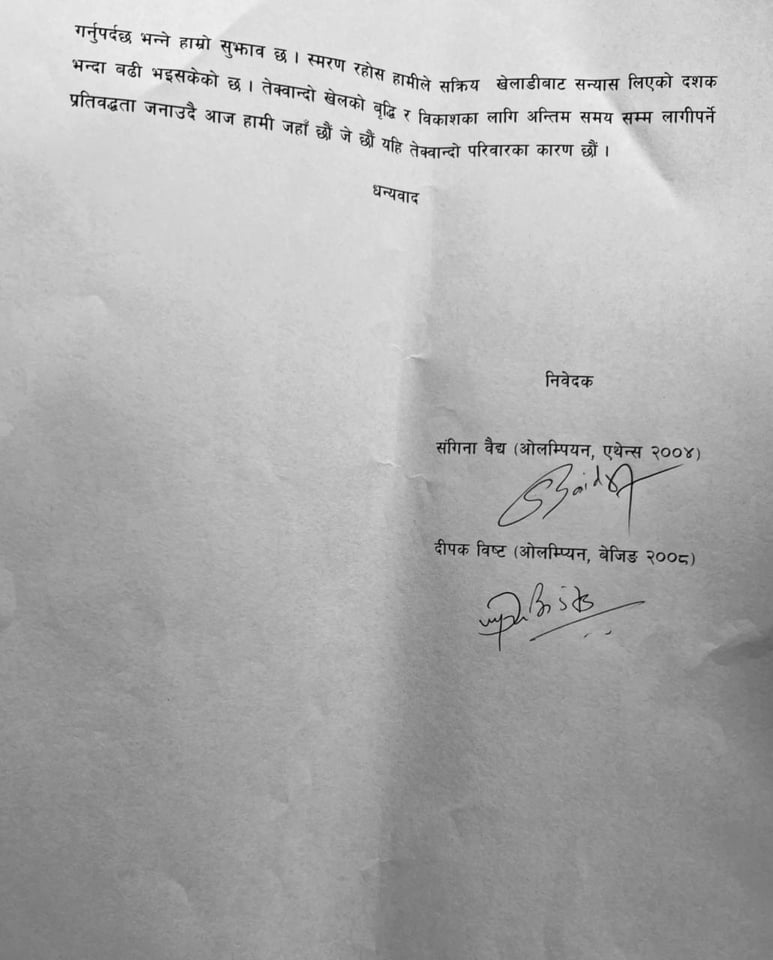 गर्नुपर्दछ भन्ने हाम्रो सुझाव छ । स्मरण रहोस हामीले सक्रिय खेलाडीवाट सन्यास लिएको दशक
भन्दा बढी भइसकेको छ । तेक्वान्दो खेलको वृद्धि र विकाशका लागि अन्तिम समय सम्म लागीपर्ने
प्रतिवद्धता जनाउदै आज हामी जहाँ छौं जे छौं यहि तेक्वान्दो परिवारका कारण छौं ।
धन्यवाद
निवेदक
संगिना वैद्य (ओलम्पियन, एथेन्स २००४)
SBaidya
दीपक विष्ट (ओलम्प्यिन, बेजिङ २००८)